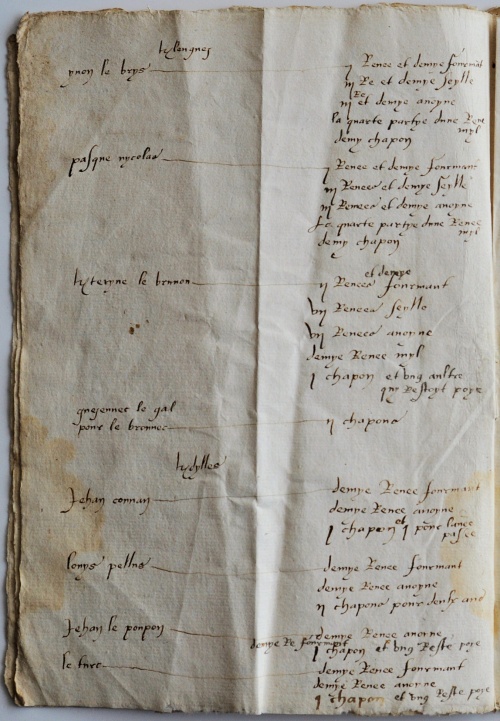 ynon le brys j Renee et demye fourmant
iij Re et demye seylle
iij Re et demye avoyne
la quarte partye dune Rene
myl
demy chapon
pasque nycolas j Renee et demye fourmant
iij Renees et demye seylle
iij Renees et demye avoyne
la quarte partye dune Renee
myl
demy chapon
le bronnou ij Renees et demye fourmant
vij Renees seylle
vij Renees avoyne
demye Renee myl
j chapon et ung aultre
Restoyt poye
le gal
pour le bronnec ij chapons
Jehan connan demye Renee fourmant
demye Renee avoyne
j chapon et j pour lance
passee
louys pellus demye Renee fourmant
demye Renee avoyne
ij chapons pour deulx ans
Jehan le ponpon demye Renee avoyne
demye Re fourmant j chapon et ung Reste poye
le turc demye Renee fourmant
demye Renee avoyne
j chapon et ung Reste poye